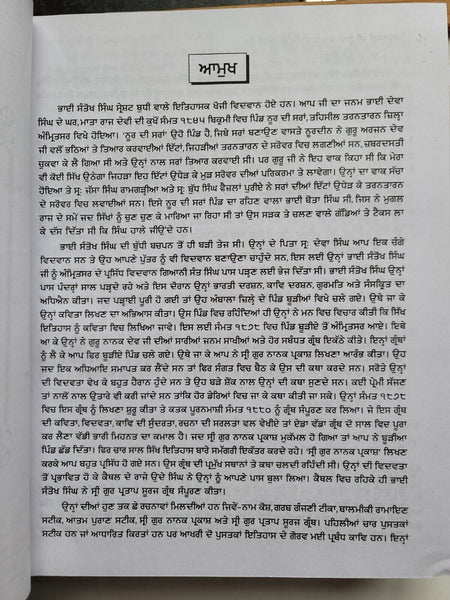 ਆਮੁਖ
ਭਾਈ ਸੰਤੋਖ ਸਿੰਘ ਸ੍ਰੇਸ਼ਟ ਬੁਧੀ ਵਾਲੇ ਇਤਿਹਾਸਕ ਖੋਜੀ ਵਿਦਵਾਨ ਹੋਏ ਹਨ। ਆਪ ਜੀ ਦਾ ਜਨਮ ਭਾਈ ਦੇਵਾ
ਸਿੰਘ ਦੇ ਘਰ, ਮਾਤਾ ਰਾਜ ਦੇਵੀ ਦੀ ਕੁਖੋਂ ਸੰਮਤ ੧੮੪੫ ਬਿਕ੍ਰਮੀ ਵਿਚ ਪਿੰਡ ਨੂਰ ਦੀ ਸਰਾਂ, ਤਹਿਸੀਲ ਤਰਨਤਾਰਨ ਜ਼ਿਲ੍ਹਾ
ਅੰਮ੍ਰਿਤਸਰ ਵਿਖੇ ਹੋਇਆ। 'ਨੂਰ ਦੀ ਸਰਾਂ' ਉਹੋ ਪਿੰਡ ਹੈ, ਜਿਥੇ ਸਰਾਂ ਬਣਾਉਣ ਵਾਸਤੇ ਨੂਰਦੀਨ ਨੇ ਗੁਰੂ ਅਰਜਨ ਦੇਵ
ਜੀ ਵਲੋਂ ਭਠਿਆਂ ਤੇ ਤਿਆਰ ਕਰਵਾਈਆਂ ਇੱਟਾਂ, ਜਿਹੜੀਆਂ ਤਰਨਤਾਰਨ ਦੇ ਸਰੋਵਰ ਵਿਚ ਲਗਣੀਆਂ ਸਨ, ਜ਼ਬਰਦਸਤੀ
ਚੁਕਵਾ ਕੇ ਲੈ ਗਿਆ ਸੀ ਅਤੇ ਉਨ੍ਹਾਂ ਨਾਲ ਸਰਾਂ ਤਿਆਰ ਕਰਵਾਈ ਸੀ। ਪਰ ਗੁਰੂ ਜੀ ਨੇ ਇਹ ਵਾਕ ਕਿਹਾ ਸੀ ਕਿ ਮੇਰਾ
ਵੀ ਕੋਈ ਸਿੱਖ ਉਠੇਗਾ ਜਿਹੜਾ ਇਹ ਇੱਟਾਂ ਉਧੇੜ ਕੇ ਮੁੜ ਸਰੋਵਰ ਦੀਆਂ ਪਰਿਕਰਮਾ ਤੇ ਲਾਵੇਗਾ। ਉਨ੍ਹਾਂ ਦਾ ਵਾਕ ਸੱਚਾ
ਹੋਇਆ ਤੇ ਸ੍ਰ: ਜੱਸਾ ਸਿੰਘ ਰਾਮਗੜੀਆ ਅਤੇ ਸ੍ਰ: ਬੁੱਧ ਸਿੰਘ ਫੈਜ਼ਲਾ ਪੁਰੀਏ ਨੇ ਸਰਾਂ ਦੀਆਂ ਇੱਟਾਂ ਉਧੇੜ ਕੇ ਤਰਨਤਾਰਨ
ਦੇ ਸਰੋਵਰ ਵਿਚ ਲਵਾਈਆਂ ਸਨ। ਇਸੇ ਨੂਰ ਦੀ ਸਰਾਂ ਪਿੰਡ ਦਾ ਰਹਿਣ ਵਾਲਾ ਭਾਈ ਬੋਤਾ ਸਿੰਘ ਸੀ, ਜਿਸ ਨੇ ਮੁਗਲ
ਰਾਜ ਦੇ ਸਮੇਂ ਜਦ ਸਿੱਖਾਂ ਨੂੰ ਚੁਣ ਚੁਣ ਕੇ ਮਾਰਿਆ ਜਾ ਰਿਹਾ ਸੀ ਤਾਂ ਉਸ ਸੜਕ ਤੇ ਚਲਣ ਵਾਲੇ ਗੱਡਿਆਂ ਤੇ ਟੈਕਸ ਲਾ
ਕੇ ਦੱਸ ਦਿੱਤਾ ਸੀ ਕਿ ਸਿੰਘ ਹਾਲੇ ਜੀਉਂਦੇ ਹਨ।
ਭਾਈ ਸੰਤੋਖ ਸਿੰਘ ਦੀ ਬੁੱਧੀ ਬਚਪਨ ਤੋਂ ਹੀ ਬੜੀ ਤੇਜ ਸੀ। ਉਨ੍ਹਾਂ ਦੇ ਪਿਤਾ ਸ੍ਰ: ਦੇਵਾ ਸਿੰਘ ਆਪ ਇਕ ਚੰਗੇ
ਵਿਦਵਾਨ ਸਨ ਤੇ ਉਹ ਆਪਣੇ ਪੁੱਤਰ ਨੂੰ ਵੀ ਵਿਦਵਾਨ ਬਣਾਉਣਾ ਚਾਹੁੰਦੇ ਸਨ, ਇਸ ਲਈ ਉਨ੍ਹਾਂ ਭਾਈ ਸੰਤੋਖ ਸਿੰਘ
ਜੀ ਨੂੰ ਅੰਮ੍ਰਿਤਸਰ ਦੇ ਪ੍ਰਸਿੱਧ ਵਿਦਵਾਨ ਗਿਆਨੀ ਸੰਤ ਸਿੰਘ ਪਾਸ ਪੜ੍ਹਣ ਲਈ ਭੇਜ ਦਿੱਤਾ ਸੀ। ਭਾਈ ਸੰਤੋਖ ਸਿੰਘ ਉਨ੍ਹਾਂ
ਪਾਸ ਪੰਦਰਾਂ ਸਾਲ ਪੜ੍ਹਦੇ ਰਹੇ ਅਤੇ ਇਸ ਦੌਰਾਨ ਉਨ੍ਹਾਂ ਭਾਰਤੀ ਦਰਸ਼ਨ, ਕਾਵਿ ਦਰਸ਼ਨ, ਗੁਰਮਤਿ ਅਤੇ ਸੰਸਕ੍ਰਿਤ ਦਾ
ਅਧਿਐਨ ਕੀਤਾ। ਜਦ ਪੜ੍ਹਾਈ ਪੂਰੀ ਹੋ ਗਈ ਤਾਂ ਉਹ ਅੰਬਾਲਾ ਜ਼ਿਲ੍ਹੇ ਦੇ ਪਿੰਡ ਬੂੜੀਆਂ ਵਿਖੇ ਚਲੇ ਗਏ। ਉਥੇ ਜਾ ਕੇ
ਉਨ੍ਹਾਂ ਲਿਖਣ ਦਾ ਅਭਿਆਸ ਕੀਤਾ। ਉਸ ਪਿੰਡ ਵਿਚ ਰਹਿੰਦਿਆਂ ਹੀ ਉਨ੍ਹਾਂ ਨੇ ਮਨ ਵਿਚ ਵਿਚਾਰ ਕੀਤੀ ਕਿ ਸਿੱਖ
ਇਤਿਹਾਸ ਨੂੰ ਕਵਿਤਾ ਵਿਚ ਲਿਖਿਆ ਜਾਵੇ। ਇਸ ਲਈ ਸੰਮਤ ੧੮੭੮ ਵਿਚ ਬੂੜੀਏ ਤੋਂ ਅੰਮ੍ਰਿਤਸਰ ਆਏ। ਇਥੇ
ਆ ਕੇ ਉਨ੍ਹਾਂ ਨੇ ਗੁਰੂ ਨਾਨਕ ਦੇਵ ਜੀ ਦੀਆਂ ਸਾਰੀਆਂ ਜਨਮ ਸਾਖੀਆਂ ਅਤੇ ਹੋਰ ਸਬੰਧਤ ਗ੍ਰੰਥ ਇਕੱਠੇ ਕੀਤੇ। ਇਨ੍ਹਾਂ
ਨੂੰ ਲੈ ਕੇ ਆਪ ਫਿਰ ਬੂੜੀਏ ਪਿੰਡ ਚਲੇ ਗਏ। ਉਥੇ ਜਾ ਕੇ ਆਪ ਨੇ ਸ੍ਰੀ ਗੁਰ ਨਾਨਕ ਪ੍ਰਕਾਸ਼ ਲਿਖਣਾ ਆਰੰਭ ਕੀਤਾ। ਉਹ
ਜਦ ਇਕ ਅਧਿਆਇ ਸਮਾਪਤ ਕਰ ਲੈਂਦੇ ਸਨ ਤਾਂ ਫਿਰ ਸੰਗਤ ਵਿਚ ਬੈਠ ਕੇ ਉਸ ਦੀ ਕਥਾ ਕਰਦੇ ਸਨ। ਸਰੋਤੇ ਉਨ੍ਹਾਂ
ਦੀ ਵਿਦਵਤਾ ਵੇਖ ਕੇ ਬਹੁਤ ਹੈਰਾਨ ਹੁੰਦੇ ਸਨ ਤੇ ਉਹ ਬੜੇ ਸ਼ੌਂਕ ਨਾਲ ਉਨ੍ਹਾਂ ਦੀ ਕਥਾ ਸੁਣਦੇ ਸਨ। ਕਈ ਪ੍ਰੇਮੀ ਸੱਜਣ
ਤਾਂ ਨਾਲੋਂ ਨਾਲ ਉਤਾਰੇ ਵੀ ਕਰੀ ਜਾਂਦੇ ਸਨ ਤਾਂਕਿ ਹੋਰ ਡੇਰਿਆਂ ਵਿਚ ਜਾ ਕੇ ਕਥਾ ਕੀਤੀ ਜਾ ਸਕੇ। ਉਨ੍ਹਾਂ ਸੰਮਤ ੧੮੭੮
ਵਿਚ ਇਸ ਗ੍ਰੰਥ ਨੂੰ ਲਿਖਣਾ ਸ਼ੁਰੂ ਕੀਤਾ ਤੇ ਕਤਕ ਪੂਰਨਮਾਸ਼ੀ ਸੰਮਤ ੧੮੮੦ ਨੂੰ ਗ੍ਰੰਥ ਸੰਪੂਰਣ ਕਰ ਲਿਆ। ਜੇ ਇਸ ਗ੍ਰੰਥ
ਦੀ ਕਵਿਤਾ, ਵਿਦਵਤਾ, ਕਾਵਿ ਦੀ ਸੁੰਦਰਤਾ, ਰਚਨਾ ਦੀ ਸਰਲਤਾ ਵਲ ਵੇਖੀਏ ਤਾਂ ਏਡਾ ਵੱਡਾ ਗ੍ਰੰਥ ਦੋ ਸਾਲ ਵਿਚ ਪੂਰਾ
ਕਰ ਲੈਣਾ ਵੱਡੀ ਭਾਰੀ ਮਿਹਨਤ ਦਾ ਕਮਾਲ ਹੈ। ਜਦ ਸ੍ਰੀ ਗੁਰ ਨਾਨਕ ਪ੍ਰਕਾਸ਼ ਮੁਕੰਮਲ ਹੋ ਗਿਆ ਤਾਂ ਆਪ ਨੇ ਬੂੜੀਆ
ਪਿੰਡ ਛੱਡ ਦਿੱਤਾ। ਫਿਰ ਚਾਰ ਸਾਲ ਸਿੱਖ ਇਤਿਹਾਸ ਬਾਰੇ ਸਮੱਗਰੀ ਇਕੱਤਰ ਕਰਦੇ ਰਹੇ। 'ਸ੍ਰੀ ਗੁਰ ਨਾਨਕ ਪ੍ਰਕਾਸ਼' ਲਿਖਣ
ਕਰਕੇ ਆਪ ਬਹੁਤ ਪ੍ਰਸਿੱਧ ਹੋ ਗਏ ਸਨ। ਉਸ ਗ੍ਰੰਥ ਦੀ ਪ੍ਰਮੁੱਖ ਸਥਾਨਾਂ ਤੇ ਕਥਾ ਚਲਦੀ ਰਹਿੰਦੀ ਸੀ। ਉਨ੍ਹਾਂ ਦੀ ਵਿਦਵਤਾ
ਤੋਂ ਪ੍ਰਭਾਵਿਤ ਹੋ ਕੇ ਕੈਥਲ ਦੇ ਰਾਜੇ ਉਦੇ ਸਿੰਘ ਨੇ ਉਨ੍ਹਾਂ ਨੂੰ ਆਪਣੇ ਪਾਸ ਬੁਲਾ ਲਿਆ। ਕੈਥਲ ਵਿਚ ਰਹਿਕੇ ਹੀ ਭਾਈ
ਸੰਤੋਖ ਸਿੰਘ ਨੇ ਸ੍ਰੀ ਗੁਰ ਪ੍ਰਤਾਪ ਸੂਰਜ ਗ੍ਰੰਥ ਸੰਪੂਰਣ ਕੀਤਾ।
ਉਨ੍ਹਾਂ ਦੀਆਂ ਹੁਣ ਤਕ ਛੇ ਰਚਨਾਵਾਂ ਮਿਲਦੀਆਂ ਹਨ ਜਿਵੇਂ-ਨਾਮ ਕੋਸ਼, ਗਰਬ ਗੰਜਣੀ ਟੀਕਾ, ਬਾਲਮੀਕੀ ਰਾਮਾਇਣ
ਸਟੀਕ, ਆਤਮ ਪੁਰਾਣ ਸਟੀਕ, ਸ੍ਰੀ ਗੁਰ ਨਾਨਕ ਪ੍ਰਕਾਸ਼ ਅਤੇ ਸ੍ਰੀ ਗੁਰ ਪ੍ਰਤਾਪ ਸੂਰਜ ਗ੍ਰੰਥ। ਪਹਿਲੀਆਂ ਚਾਰ ਪੁਸਤਕਾਂ
ਸਟੀਕ ਹਨ ਜਾਂ ਆਧਾਰਿਤ ਕਿਰਤਾਂ ਹਨ ਪਰ ਆਖਰੀ ਦੋ ਪੁਸਤਕਾਂ ਇਤਿਹਾਸ ਦੇ ਗੌਰਵ ਮਈ ਪ੍ਰਬੰਧ ਕਾਵਿ ਹਨ। ਇਨ੍ਹਾਂ